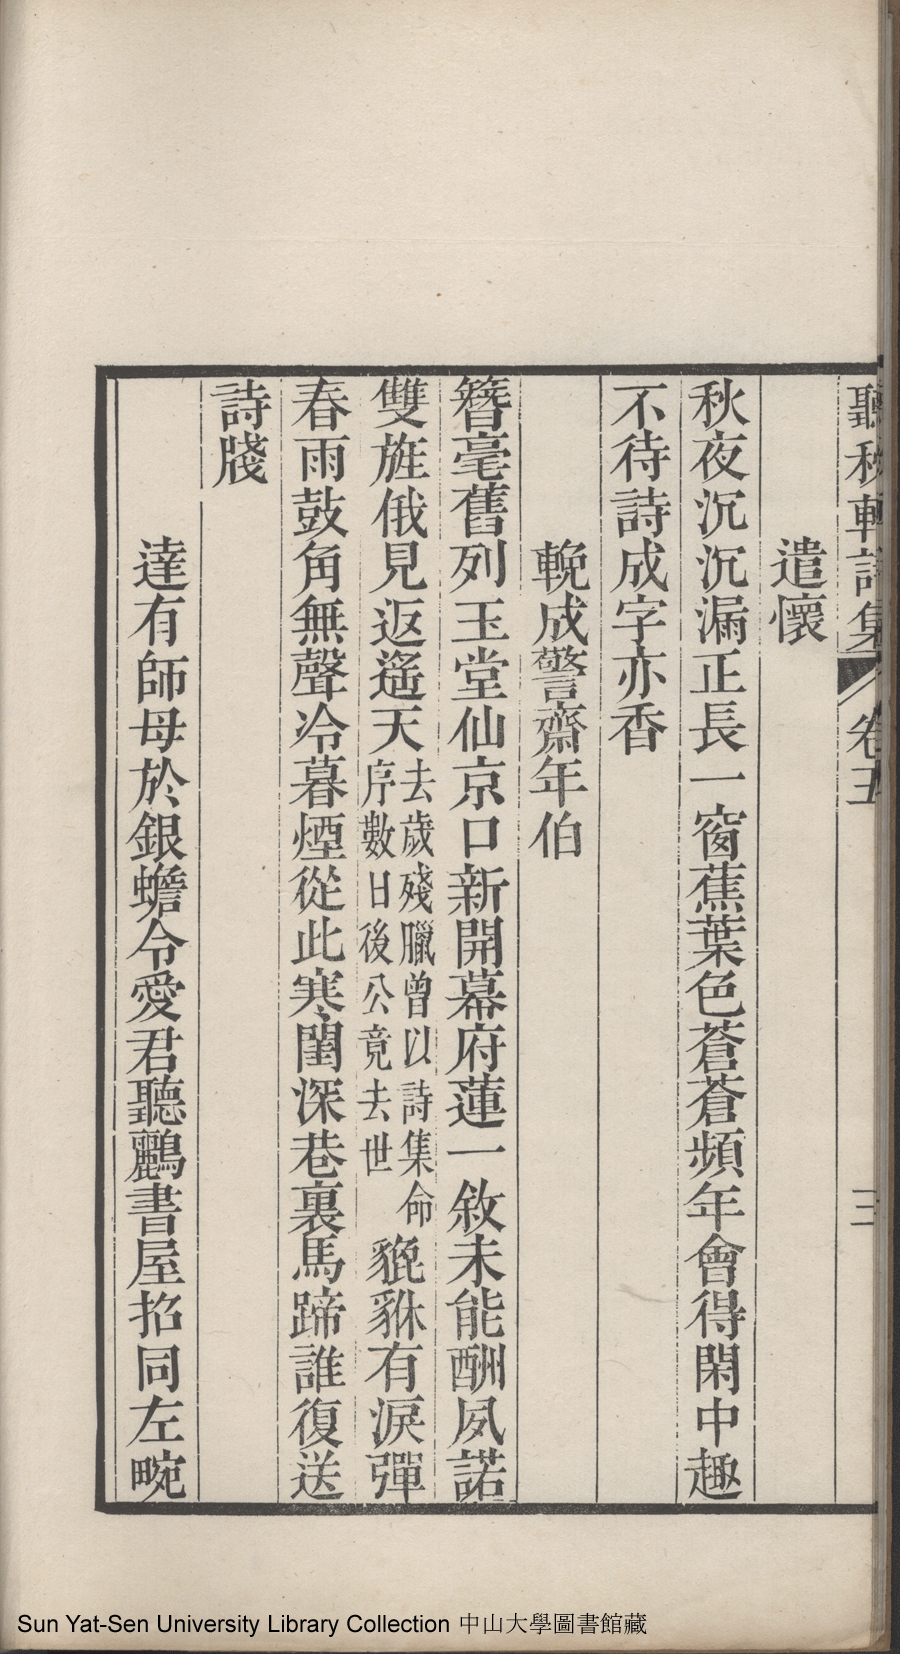 聽秋軒詩集 卷五 三
遣懷
秋夜沉沉漏正長一窗蕉葉色蒼蒼頻年會得閑中趣
不待詩成字亦香
輓成警齋年伯
簪毫舊列玉堂仙京口新開幕府蓮一敘未能酬夙諾
雙旌俄見返遙天去歲殘臘曾以詩集命序數日後公竟去世貔貅有淚彈
春雨鼓角無聲冷暮煙從此寒閨深巷裏馬蹄誰復送
詩牋
達有師母於銀蟾令愛君聽鸝書屋招同左畹
Sun Yat-Sen University Library Collection 中山大學圖書館藏